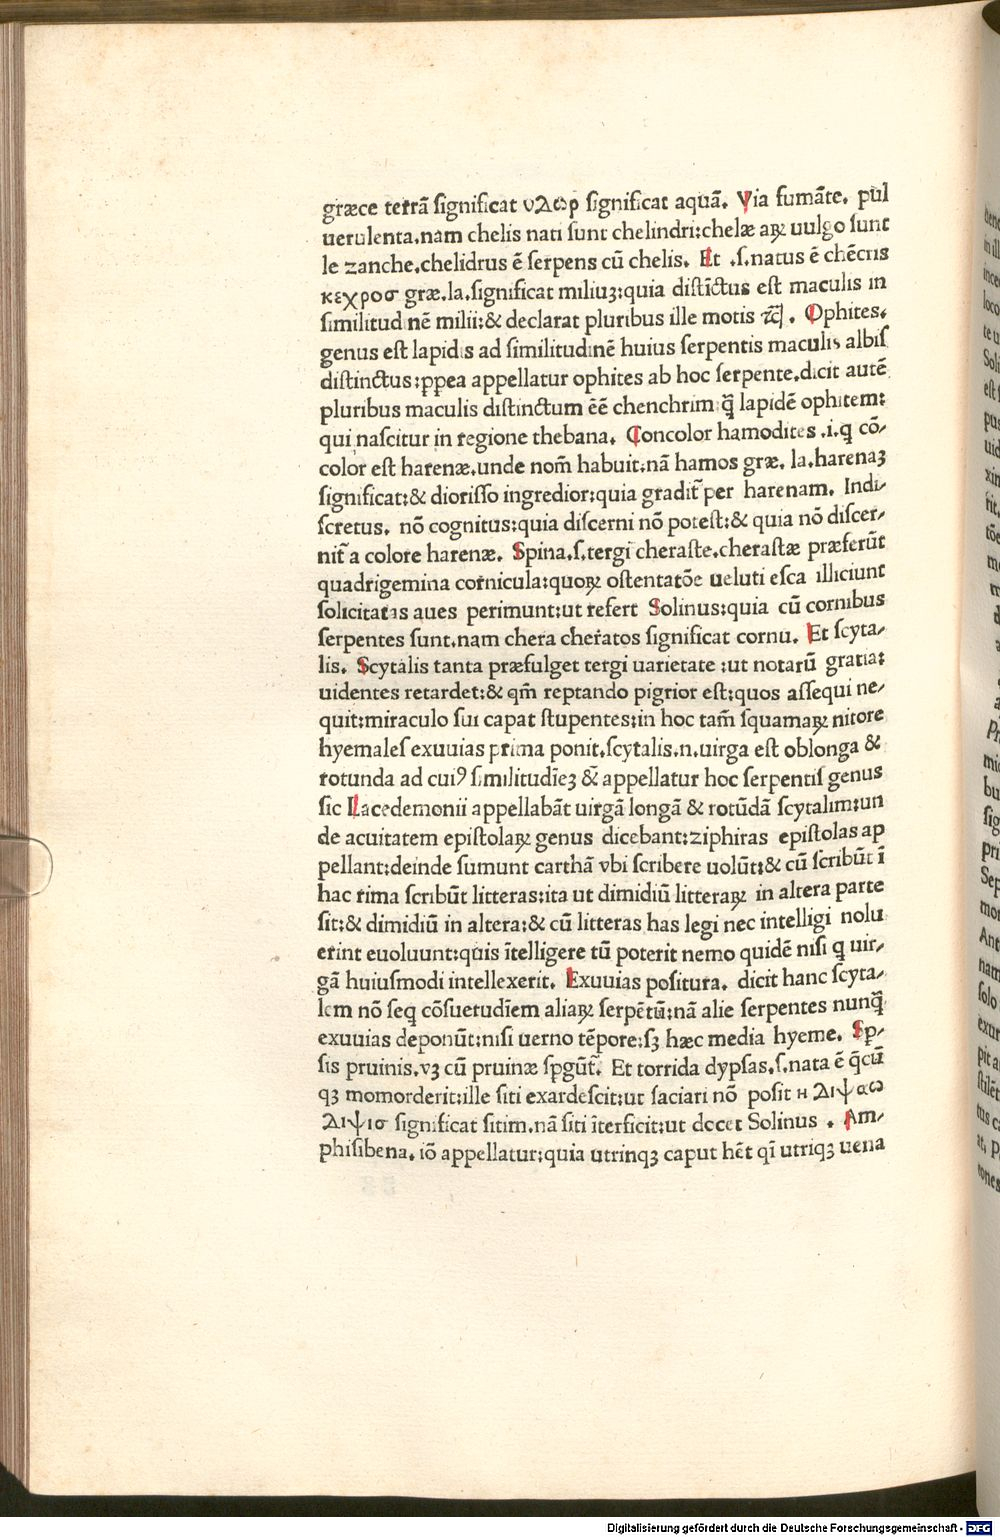 græce terrā ſignificat υλωρ ſignificat aquā. Via fumāte. pul
uerulenta.nam chelis nati ſunt chelindri:chelæ aꝝ uulgo ſunt
le zanche.chelidrus ē ſerpens cū chelis. Et .ſ.natus ē chēcris
κεχροσ græ.la.ſignificat miliuꝫ:quia diſtīctus eſt maculis in
ſimilitudinē milii:& declarat pluribus ille motis &c. Ophites.
genus eſt lapidis ad ſimilitudinē huius ſerpentis maculis albiſ
diſtinctus:ꝓpea appellatur ophites ab hoc ſerpente.dicit autē
pluribus maculis diſtinctum ēē chenchrim ꝗ̄ lapidē ophitem:
qui naſcitur in regione thebana. Concolor hamodites .i.ꝗ cō-
color eſt harenæ.unde nom̄ habuit.nā hamos græ. la.harenaꝫ
ſignificat:& dioriſſo ingredior:quia gradit̃ per harenam. Indi-
ſcretus. nō cognitus:quia diſcerni nō poteſt:& quia nō diſcer-
nit̃ a colore harenæ. Spina.ſ.tergi cheraſte.cheraſtæ præferūt
quadrigemina cornicula:quoꝝ oſtentatōe ueluti eſca illiciunt
ſolicitatas aues perimunt:ut refert Solinus:quia cū cornibus
ſerpentes ſunt.nam chera cheratos ſignificat cornu. Et ſcyta-
lis. Scytalis tanta præfulget tergi uarietate :ut notarū gratia:
uidentes retardet:& qm̄ reptando pigrior eſt:quos aſſequi ne-
quit:miraculo ſui capat ſtupentes:in hoc tam̄ ſquamaꝝ nitore
hyemaleſ exuuias prima ponit.ſcytalis.n.uirga eſt oblonga &
rotunda ad cuiꝰ ſimilitudīeꝫ & appellatur hoc ſerpentiſ genus
ſic Lacedemonii appellabāt uirgā longā & rotūdā ſcytalim:un
de acuitatem epiſtolaꝝ genus dicebant:ziphiras epiſtolas ap
pellant:deinde ſumunt carthā vbi ſcribere uolūt:& cū ſcribūt ī
hac rima ſcribūt litteras:ita ut dimidiū litteraꝝ in altera parte
ſit:& dimidiū in altera:& cū litteras has legi nec intelligi nolu
erint euoluunt:quis ītelligere tū poterit nemo quidē niſi ꝗ uir-
gā huiuſmodi intellexerit. Exuuias poſitura. dicit hanc ſcyta-
lem nō ſeꝗ cōſuetudīem aliaꝝ ſerpētū:nā alie ſerpentes nunꝗ̄
exuuias deponūt:niſi uerno tēpore:ſꝫ hæc media hyeme. Sp-
ſis pruinis.vꝫ cū pruinæ ſpgūt̃. Et torrida dypſas.ſ.nata ē ꝗ̄cū
qꝫ momorderit:ille ſiti exardeſcit:ut ſaciari nō poſit н λιψαω
λιψισ ſignificat ſitim.nā ſiti īterficit:ut docet Solinus . Am-
phiſibena. iō appellatur:quia utrinqꝫ caput hēt qī utriqꝫ uena